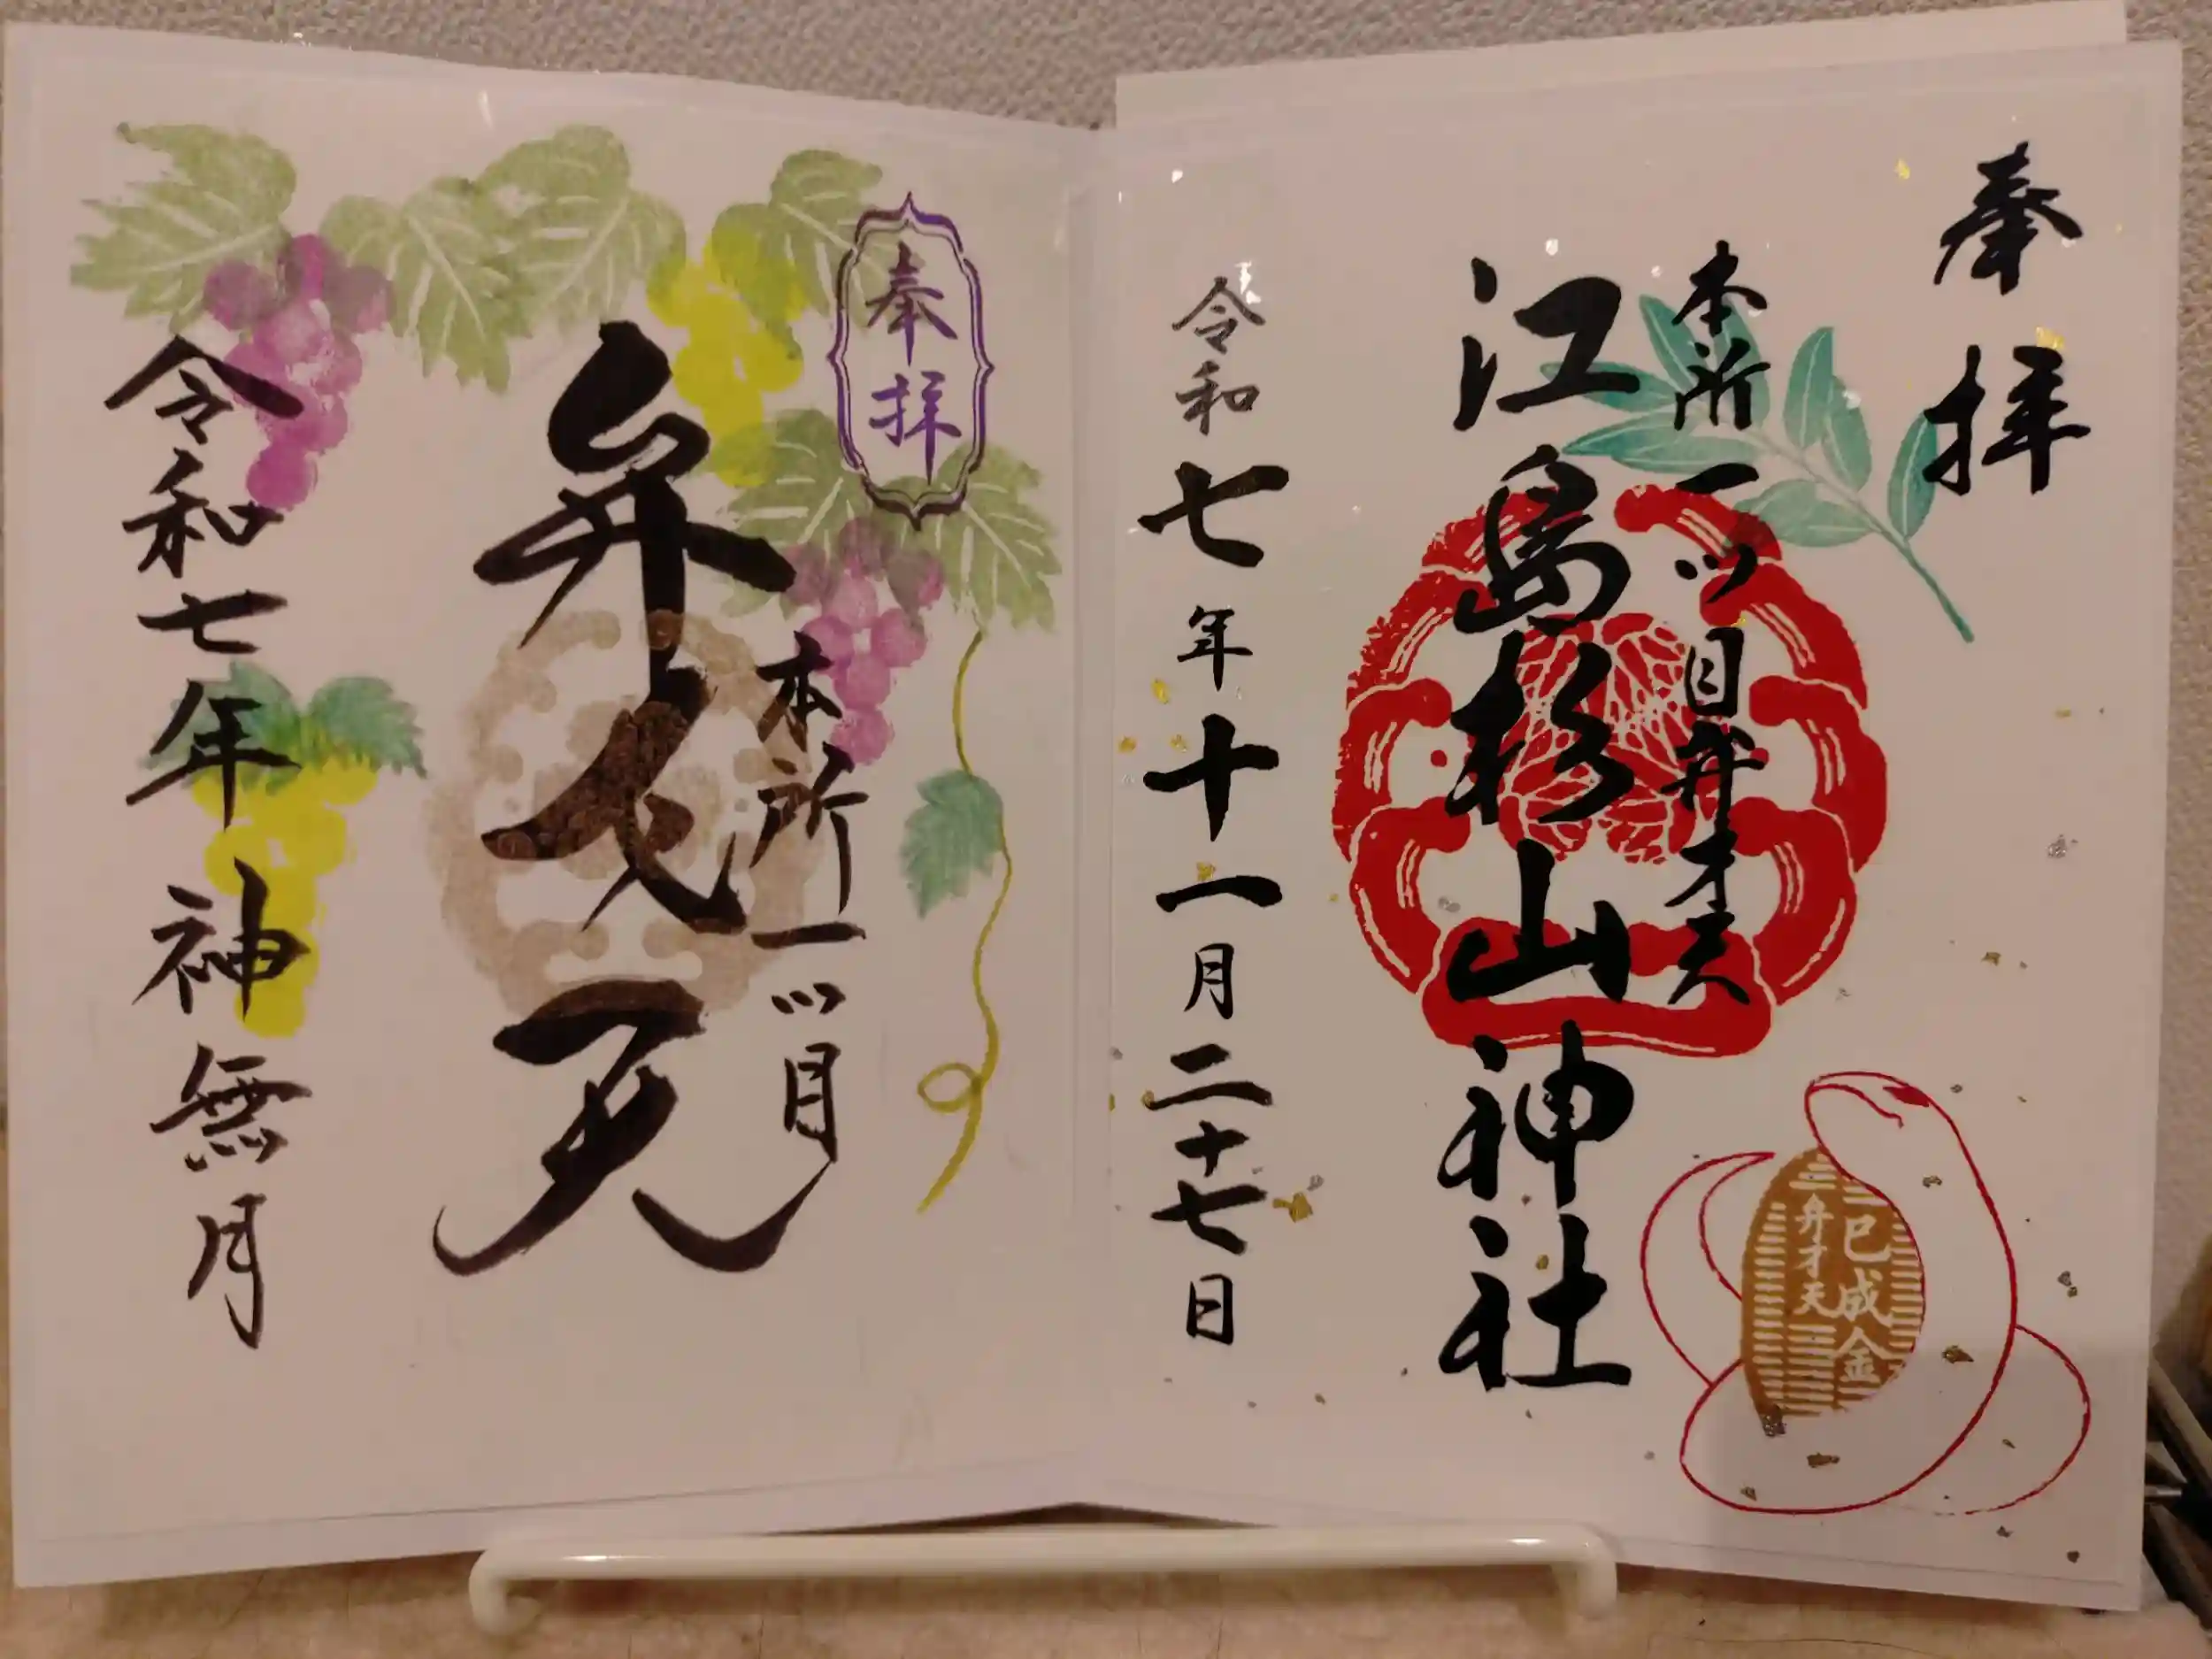 奉拝
本所一ツ目弁才天
江島杉山神社
令和七年十一月二十七日
巳成金
弁才天
奉拝
本所一ツ目
弁才天
令和七年神無月